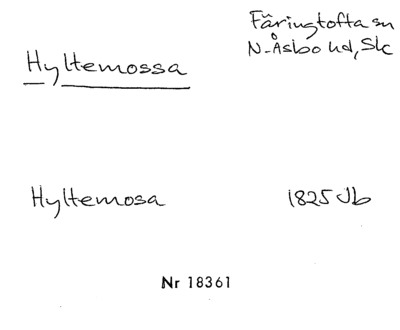 Färingtofta sn
N. Åsbo hd, Sk
Hyltemossa
Hyltemosa 1825 Jb
Nr 18361